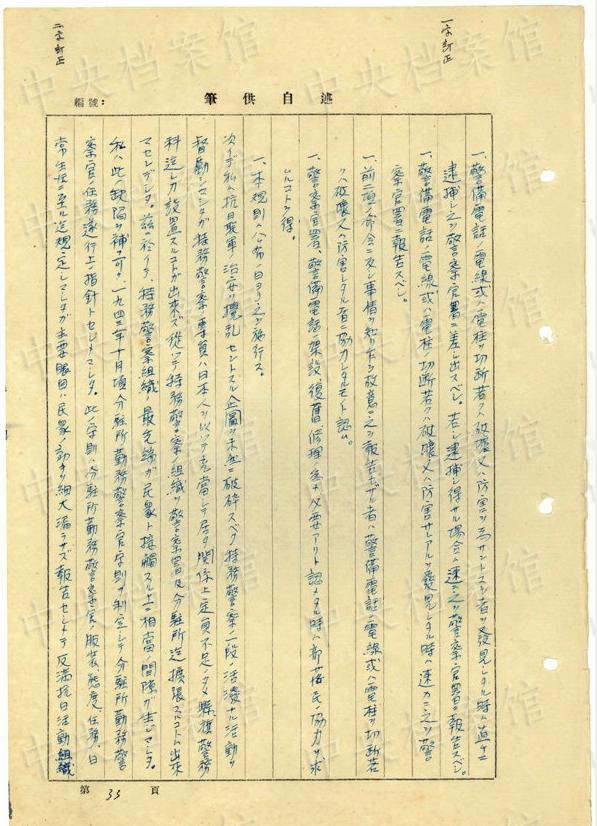 一字訂正
二字訂正
述自供筆
編號：
一、警備電話ノ電線或ハ電柱ヲ切断若クハ破壊又ハ防害ヲ為サントスル者ヲ發見シタル時ハ直チニ
逮捕シ之ヲ警察官署ニ差シ出スベシ。若シ逮捕シ得サル場合ハ速ニ之ヲ警察官署ニ報告スベシ。
一、警備電話ノ電線或ハ電柱ノ切断若クハ破壊又ハ防害サレアルヲ發見シタル時ハ速カニ之ヲ警
察官署ニ報告スベシ。
一、前二項ノ命令ニ反シ事情ヲ知リ乍ラ故意ニ之ヲ報告セザル者ハ警備電話ノ電線或ハ電柱ヲ切断若
クハ破壊又ハ防害シタル者ニ協力シタルモノト認ム。
一、警察官署ハ警備電話ノ架設、復舊、修理ノ為メ必要アリト認メタル時ハ部落民ノ協力ヲ求
ムルコトヲ得。
一、本規則ハ公布ノ日ヨリ之ヲ施行ス。
次ニ私ハ抗日聯軍ノ治安ヲ攪乱セントスル企圖ヲ未然ニ破砕スベク特務警察ノ一段ノ活潑ナル活動ヲ
督勵シマシタガ特務警察ノ要員ハ日本人ヲ以ツテ之ニ當テ居タ関係上定員不足ノタメ縣旗警務
科迄シカ設置スルコトガ出来ズ従ツテ特務警察ノ組織ヲ警察署及分駐所迄擴張スルコトハ出来
マセンデシタ。茲ニ於イテ特務警察組織ノ最先端ガ民衆ト接觸スル上ニ相當ノ間隙ガ生ジマシタ。
私ハ此ノ缺陥ヲ補フ可ク一九四三年十月頃分駐所勤務警察官守則ヲ制定シテ分駐所勤務警
察官ノ任務遂行上ノ指針トセシメマシタ。此ノ守則ハ分駐所勤務警察官ノ服装、態度、任務、日
常生活ニ至ル迄規定シマシタガ主要眼目ハ民衆ノ動キヲ細大漏ラサズ報告セシメテ反滿抗日活動ノ組織
第 33 頁
中央档案馆